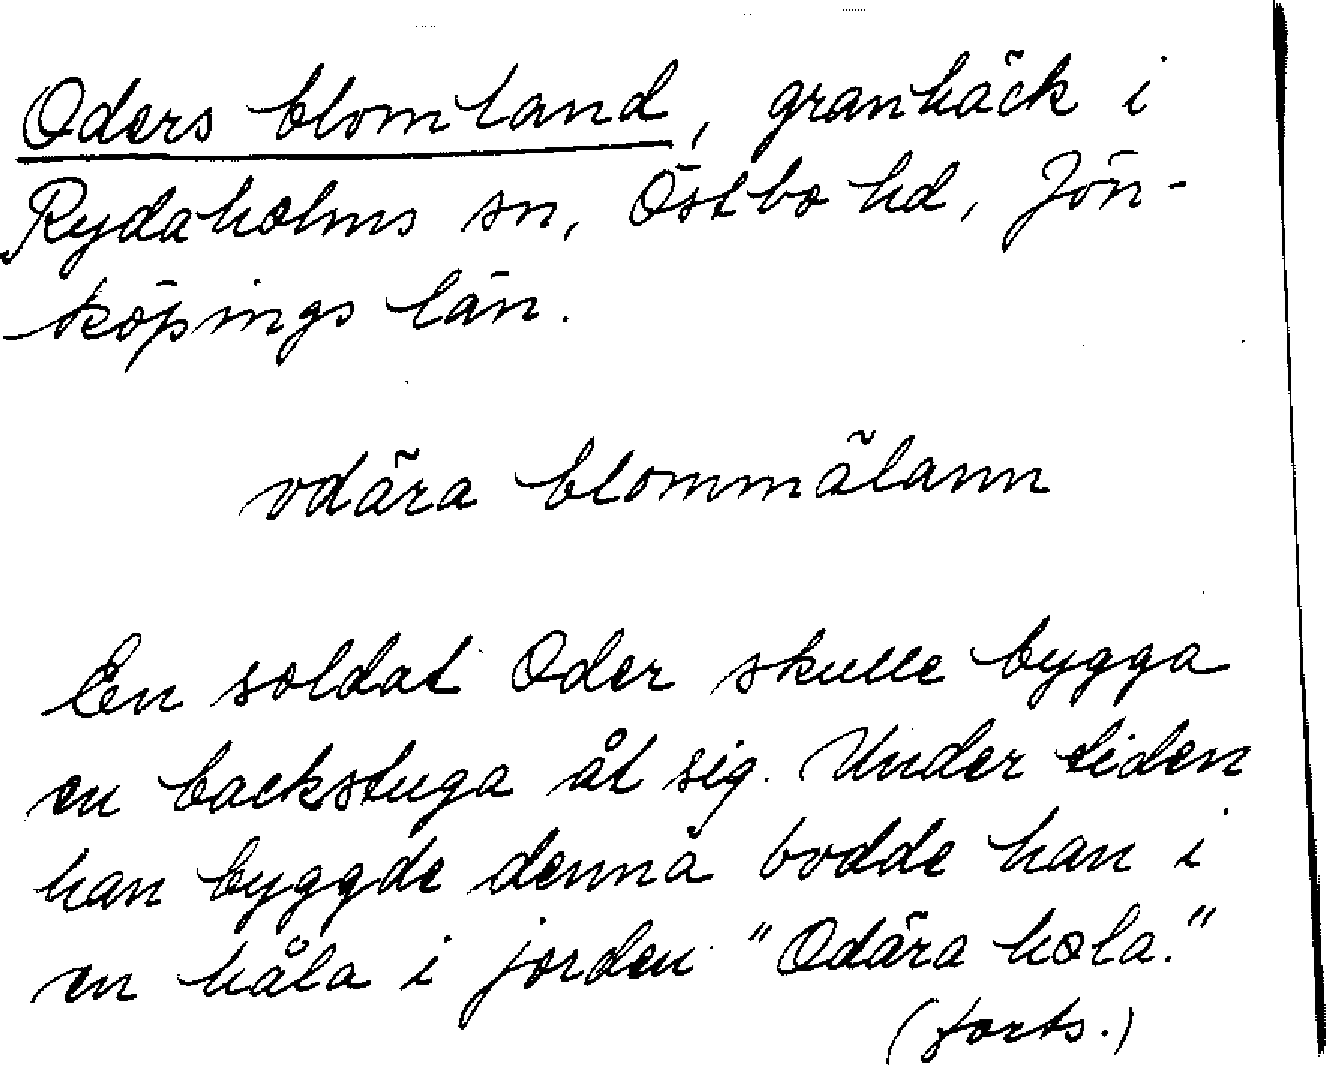 Oders blomland, granbäck i
Rydaholms sn, Östbo hd, Jön-
köpings län.
odära blommälann
En soldat Oder skulle bygga
en backstuga åt sig. Under tiden
han byggde denna bodde han i
en håla i jorden "Odära hola."
(forts.)